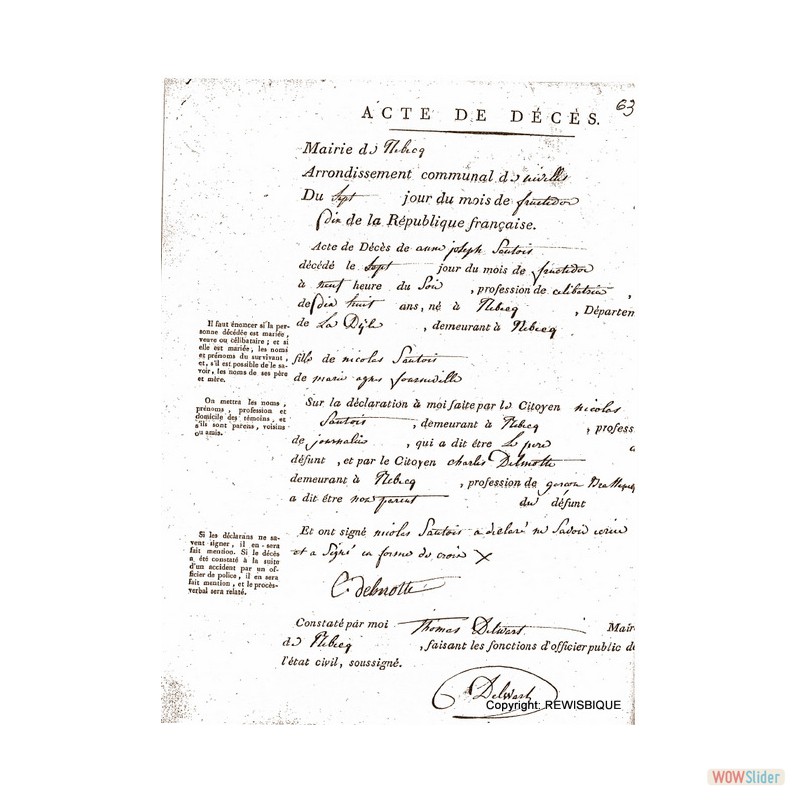 63
ACTE DE DÉCÈS.
Mairie de Rebecq
Arrondissement communal de nivelles
Du sept jour du mois de fructidor
dix de la République française.
Acte de Décès de anne joseph Sautois
décédé le sept jour du mois de fructidor
à neuf heure du Soir, profession de celibataire,
de dix huit ans, né à Rebecq, Départem
de La Dÿle, demeurant à Rebecq
fille de nicolas Sautois
de marie agnes
Sur la déclaration à moi faite par le Citoyen nicolas
Sautois, demeurant à Rebecq, profess
de journalier, qui a dit être Le pere
défunt, et par le Citoyen charles Delmotte
demeurant à Rebecq, profession de garcon
a dit être non parent du défunt
Et ont signé nicolas Sautois a déclaré ne Savoir écrire
et a Signé en forme de croix X
C. delmotte
Constaté par moi Thomas Delwart Mair
de Rebecq, faisant les fonctions d'officier public de
l'état civil, soussigné.
Delwart
Il faut énoncer si la per-
sonne décédée est mariée,
veuve ou célibataire; et si
elle est mariée, les noms
et prénoms du survivant,
et, s'il est possible de le sa-
voir, les noms de ses père
et mère.
On mettra les noms,
prénoms, profession et
domicile des témoins, et
s'ils sont parens, voisins
ou amis.
Si les déclarans ne sa-
vent signer, il en sera
fait mention. Si le décès
a été constaté à la suite
d'un accident par un of-
ficier de police, il en sera
fait mention, et le procès-
verbal sera relaté.
Copyright: REWISBIQUE
WOWSlider